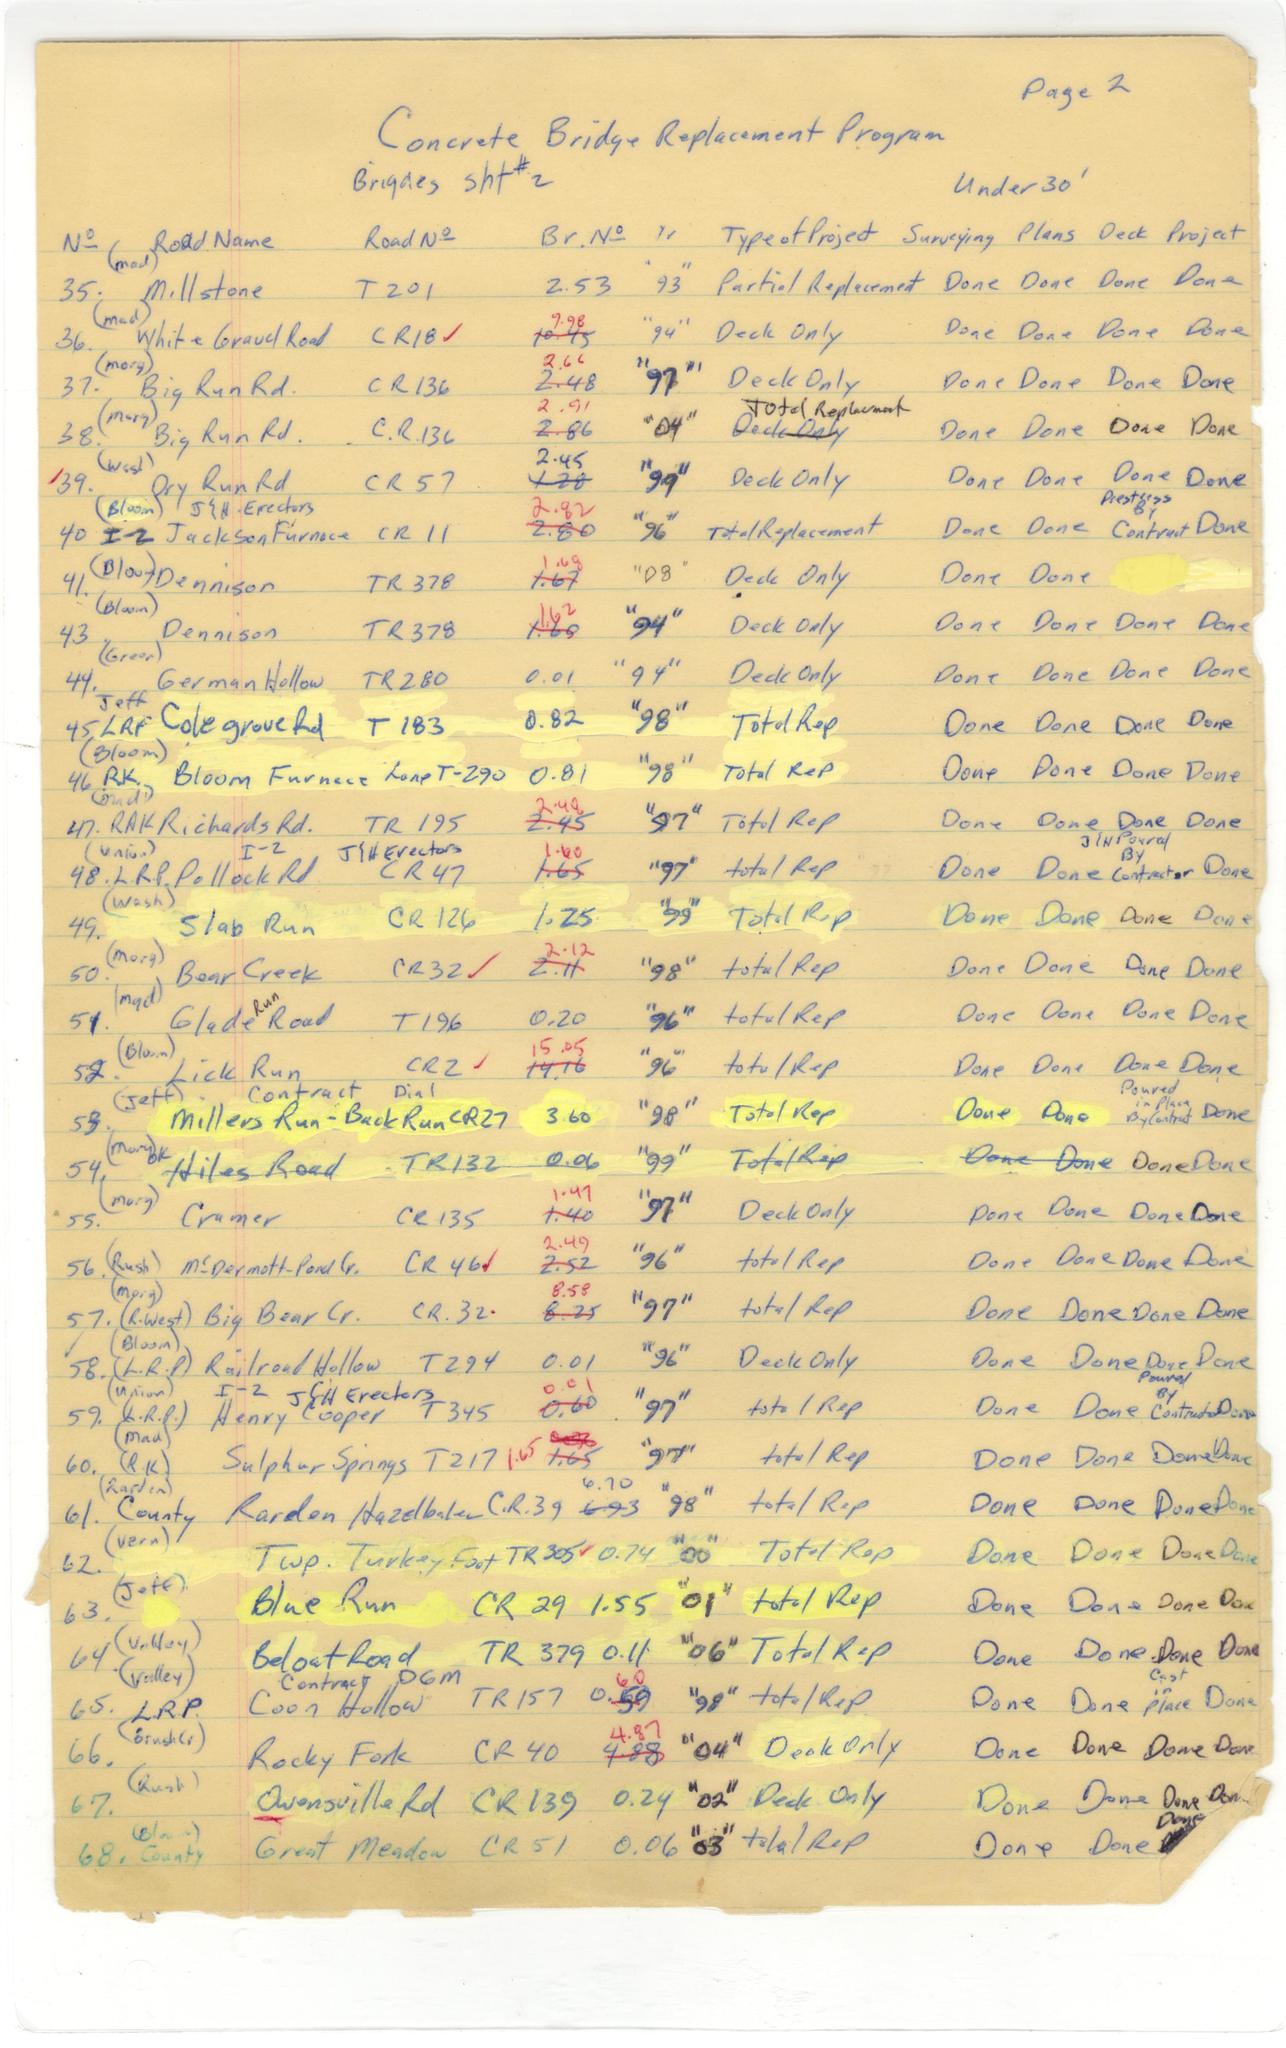 Page 2
Concrete Bridge Replacement Program
Brigdes sht #2 Under 30'
No Road Name Road No Br. No Yr Type of Project Surveying Plans Deck Project
(mad)
35. Millstone T 201 2.53 "93" Partial Replacement Done Done Done Done
(mad) 9.98
36. White Gravel Road CR18 ✓ 10.45 "94" Deck Only Done Done Done Done
(morg) 2.66
37. Big Run Rd. CR 136 2.48 "97" Deck Only Done Done Done Done
(Morg) 2.91 Total Replacment
38. Big Run Rd. C.R. 136 2.86 "04" Deck Only Done Done Done Done
(Wast) 2.45
✓39. Dry Run Rd CR 57 1.28 "99" Deck Only Done Done Done Done
(Bloom) J&H Erectors 2.82 Prestress By
40 I-2 Jackson Furnace CR 11 2.80 "96" Total Replacement Done Done Contract Done
(Bloom) 1.68
41. Dennison TR 378 1.67 "08" Deck Only Done Done
(Bloom) 1.62
43 Dennison TR 378 1.60 "94" Deck Only Done Done Done Done
(Green)
44. German Hollow TR 280 0.01 "94" Deck Only Done Done Done Done
Jeff
45. LRP Colegrove Rd T 183 0.82 "98" Total Rep Done Done Done Done
(Bloom)
46 RK. Bloom Furnace Lane T-290 0.81 "98" Total Rep Done Done Done Done
2.48
47. RAK Richards Rd. TR 195 2.45 "97" Total Rep Done Done Done Done
(Union) I-2 J&H Erectors 1.60 J&H Poured By
48. L.R.P. Pollock Rd CR 47 1.65 "97" total Rep Done Done Contractor Done
(Wash)
49. Slab Run CR 126 1.25 "99" Total Rep Done Done Done Done
(Morg) 2.12
50. Bear Creek CR32 ✓ 2.11 "98" total Rep Done Done Done Done
(mad) Run
51. Glade Road T 196 0.20 "96" total Rep Done Done Done Done
(Bloom) 15.05
52. Lick Run CR2 ✓ 14.16 "96" total Rep Done Done Done Done
(Jeff) Contract Dial Poured in Place
53. Millers Run - Back Run CR27 3.60 "98" Total Rep Done Done By Contract Done
(Morg) OK
54. Hiles Road TR 132 0.06 "99" Total Rep Done Done Done Done
(morg) 1.47
55. Cramer CR 135 1.40 "97" Deck Only Done Done Done Done
2.49
56. (Rush) McDermott-Pond Cr. CR 46 ✓ 2.52 "96" total Rep Done Done Done Done
(Morg) 8.58
57. (R.West) Big Bear Cr. CR. 32. 8.25 "97" total Rep Done Done Done Done
✓ (Bloom)
58. (L.R.P) Railroad Hollow T 294 0.01 "96" Deck Only Done Done Done Done
(Union) I-2 J&H Erectors 0.01 Poured By
59. (L.R.P.) Henry Cooper T 345 0.60 "97" total Rep Done Done Contractor Done
(Mad)
60. (R.K) Sulphur Springs T 217 1.65 1.65 "97" total Rep Done Done Done Done
(Rarden) 6.70
61. County Rarden Hazelbaker C.R. 39 6.93 "98" total Rep Done Done Done Done
(Vern)
62. Twp. Turkey Foot TR 305 ✓ 0.74 "00" Total Rep Done Done Done Done
(Jeff)
63. Blue Run CR 29 1.55 "01" total Rep Done Done Done Done
(Valley)
64 Beloat Road TR 379 0.11 "06" Total Rep Done Done Done Done
(Valley) Contract DGM 60 Cast in
65. L.R.P. Coon Hollow TR 157 0.59 "98" total Rep Done Done Place Done
(Brush Cr) 4.87
66. Rocky Fork CR 40 4.88 "04" Deck Only Done Done Done Done
(Rush)
67. Owensville Rd CR 139 0.24 "02" Deck Only Done Done Done Done
(Bloom) Done
68. County Great Meadow CR 51 0.06 "03" total Rep Done Done